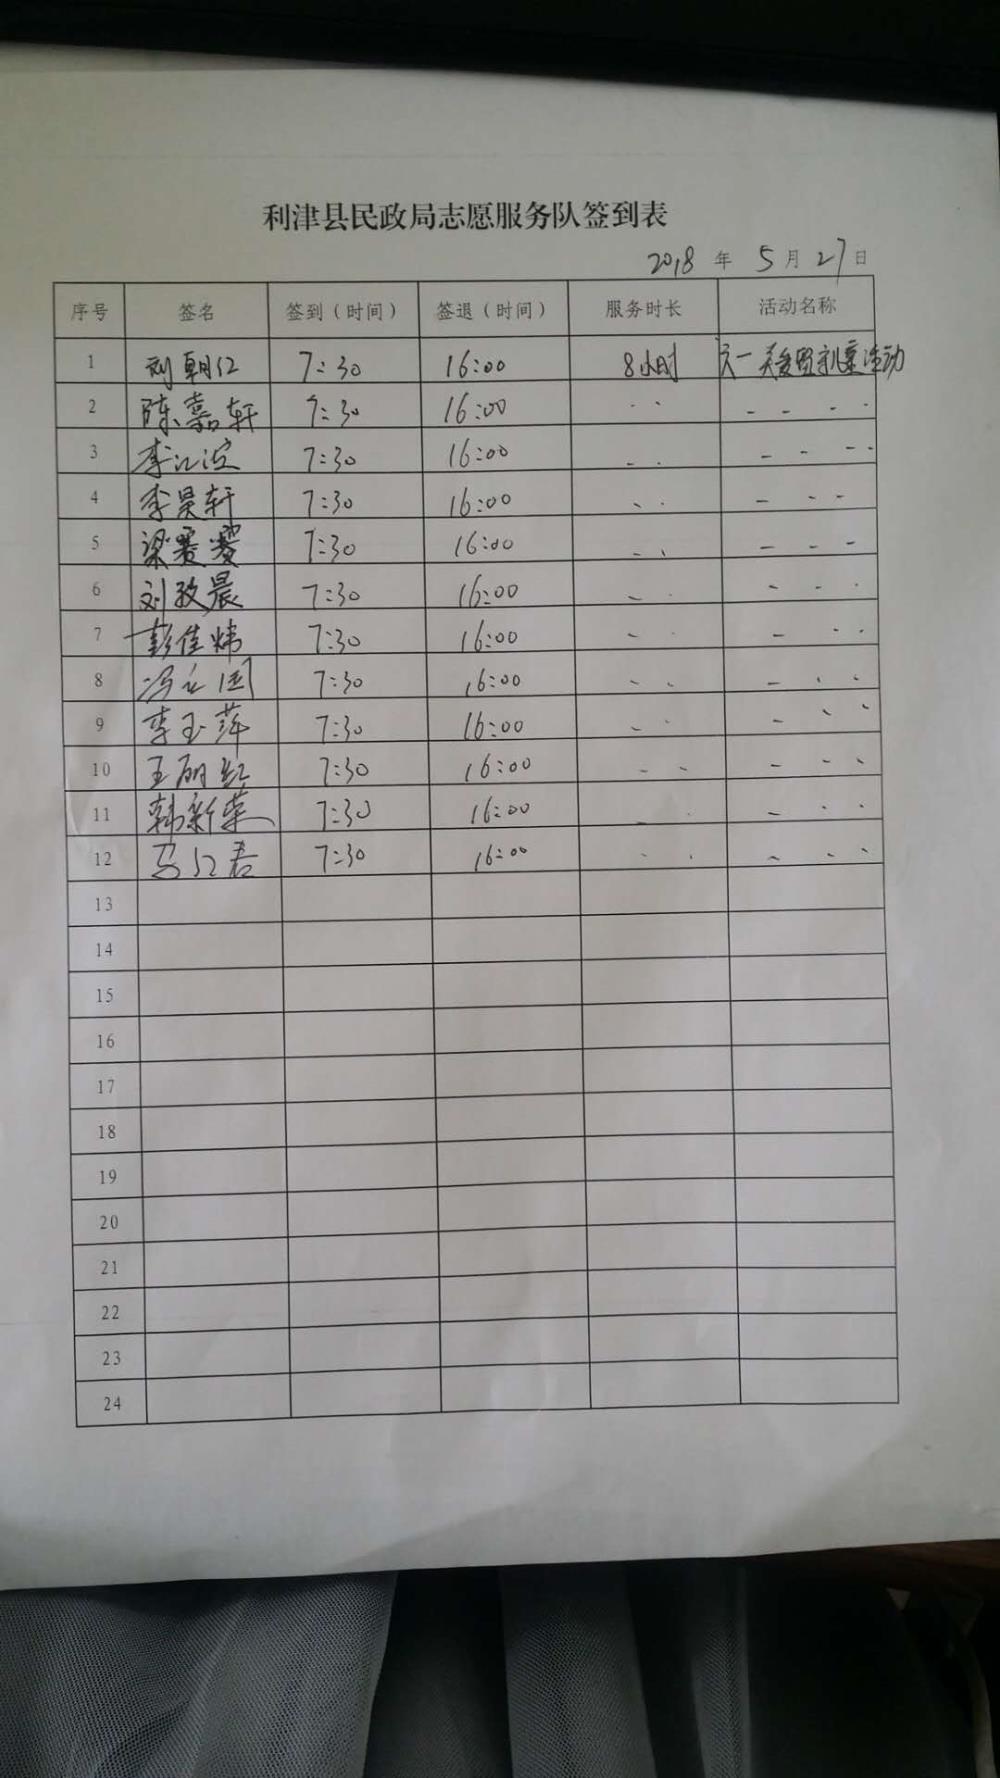 利津县民政局志愿服务队签到表
2018 年 5 月 27 日
序号 签名 签到（时间） 签退（时间） 服务时长 活动名称
1 刘朝仁 7:30 16:00 8小时 六一关爱留守儿童活动
2 陈嘉轩 7:30 16:00
3 李汇滨 7:30 16:00
4 李昊轩 7:30 16:00
5 梁赛赛 7:30 16:00
6 刘孜晨 7:30 16:00
7 彭佳炜 7:30 16:00
8 冯立国 7:30 16:00
9 李玉萍 7:30 16:00
10 王丽红 7:30 16:00
11 韩新荣 7:30 16:00
12 马红君 7:30 16:00
13
14
15
16
17
18
19
20
21
22
23
24